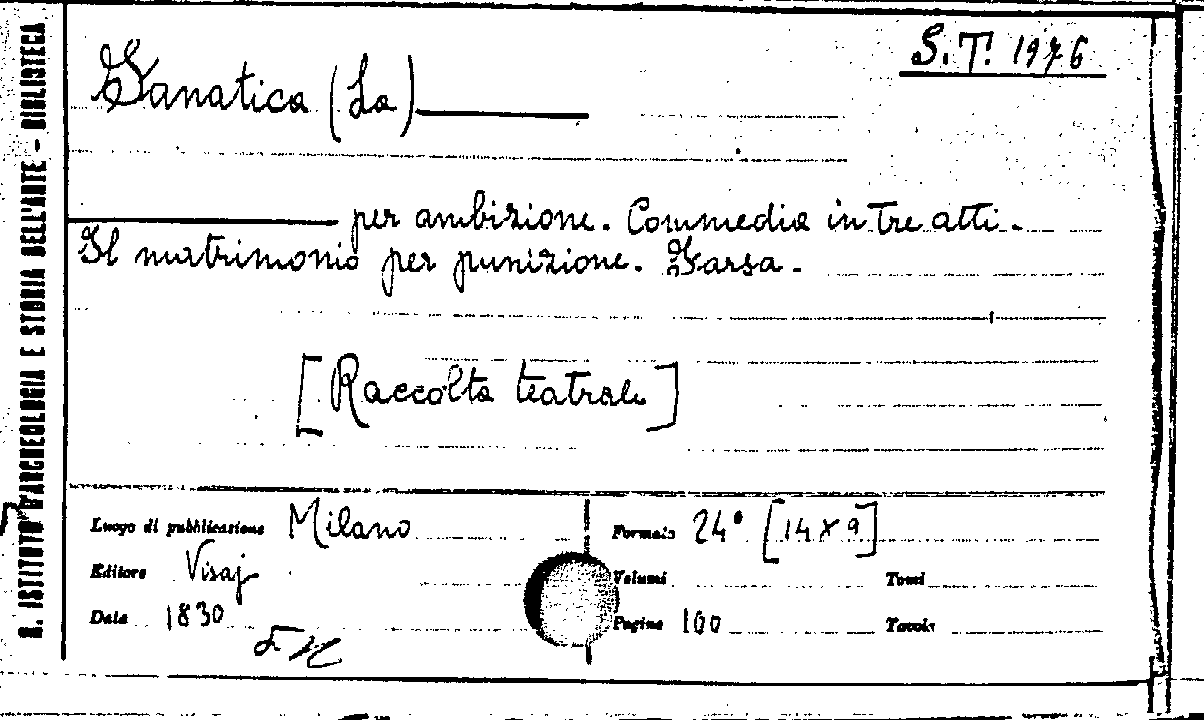 R. ISTITUTO D'ARCHEOLOGIA E STORIA DELL'ARTE - BIBLIOTECA
S.T. 1976
Fanatica (La)
per ambizione. Commedia in tre atti.
Il matrimonio per punizione. Farsa.
[Raccolta teatrale]
Luogo di pubblicazione Milano Formato 24° [14 x 9]
Editore Visaj Volumi Tomi
Data 1830 Pagine 100 Tavole